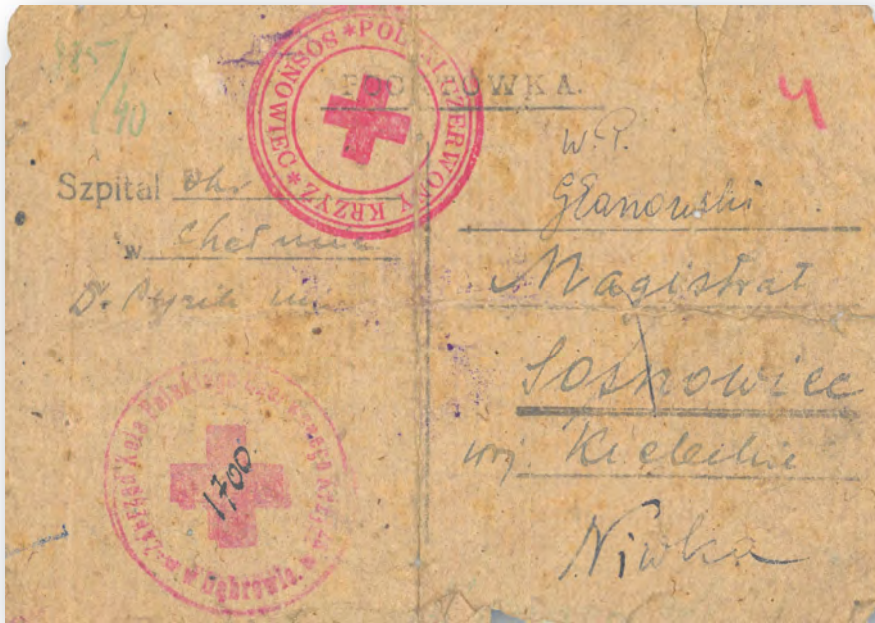 POCZTÓWKA.
* POLSKI CZERWONY KRZYŻ * SOSNOWIEC
4
40
Szpital
w Chełmie
Dr.
W.P.
Głanowski
Magistrat
Sosnowiec
woj. Kieleckie
Niwka
Zarząd Koła Polskiego Czerwonego Krzyża w Dąbrowie.
1700